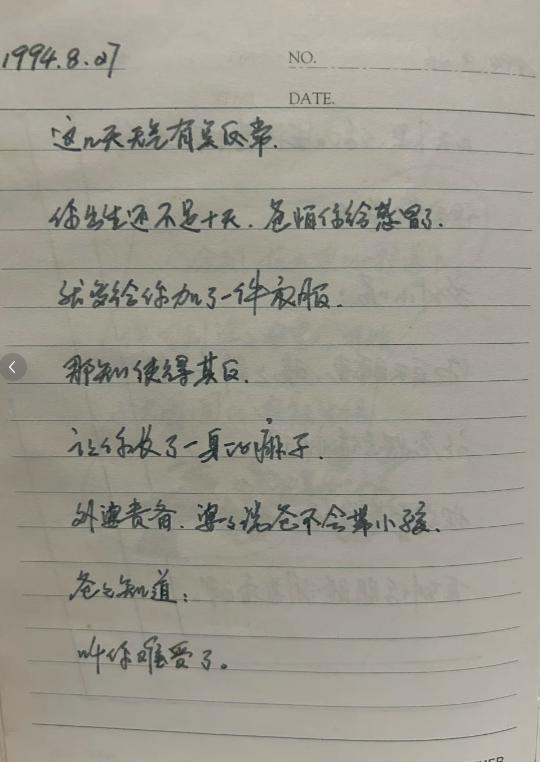 1994.8.27
NO.
DATE.
这几天天气有点反常.
你出生还不足十天.爸怕你给感冒了.
就多给你加了一件衣服.
那知使得其反.
让你长了一身的痱子.
外婆责备.婆婆说爸不会带小孩.
爸爸知道:
叫你难受了。